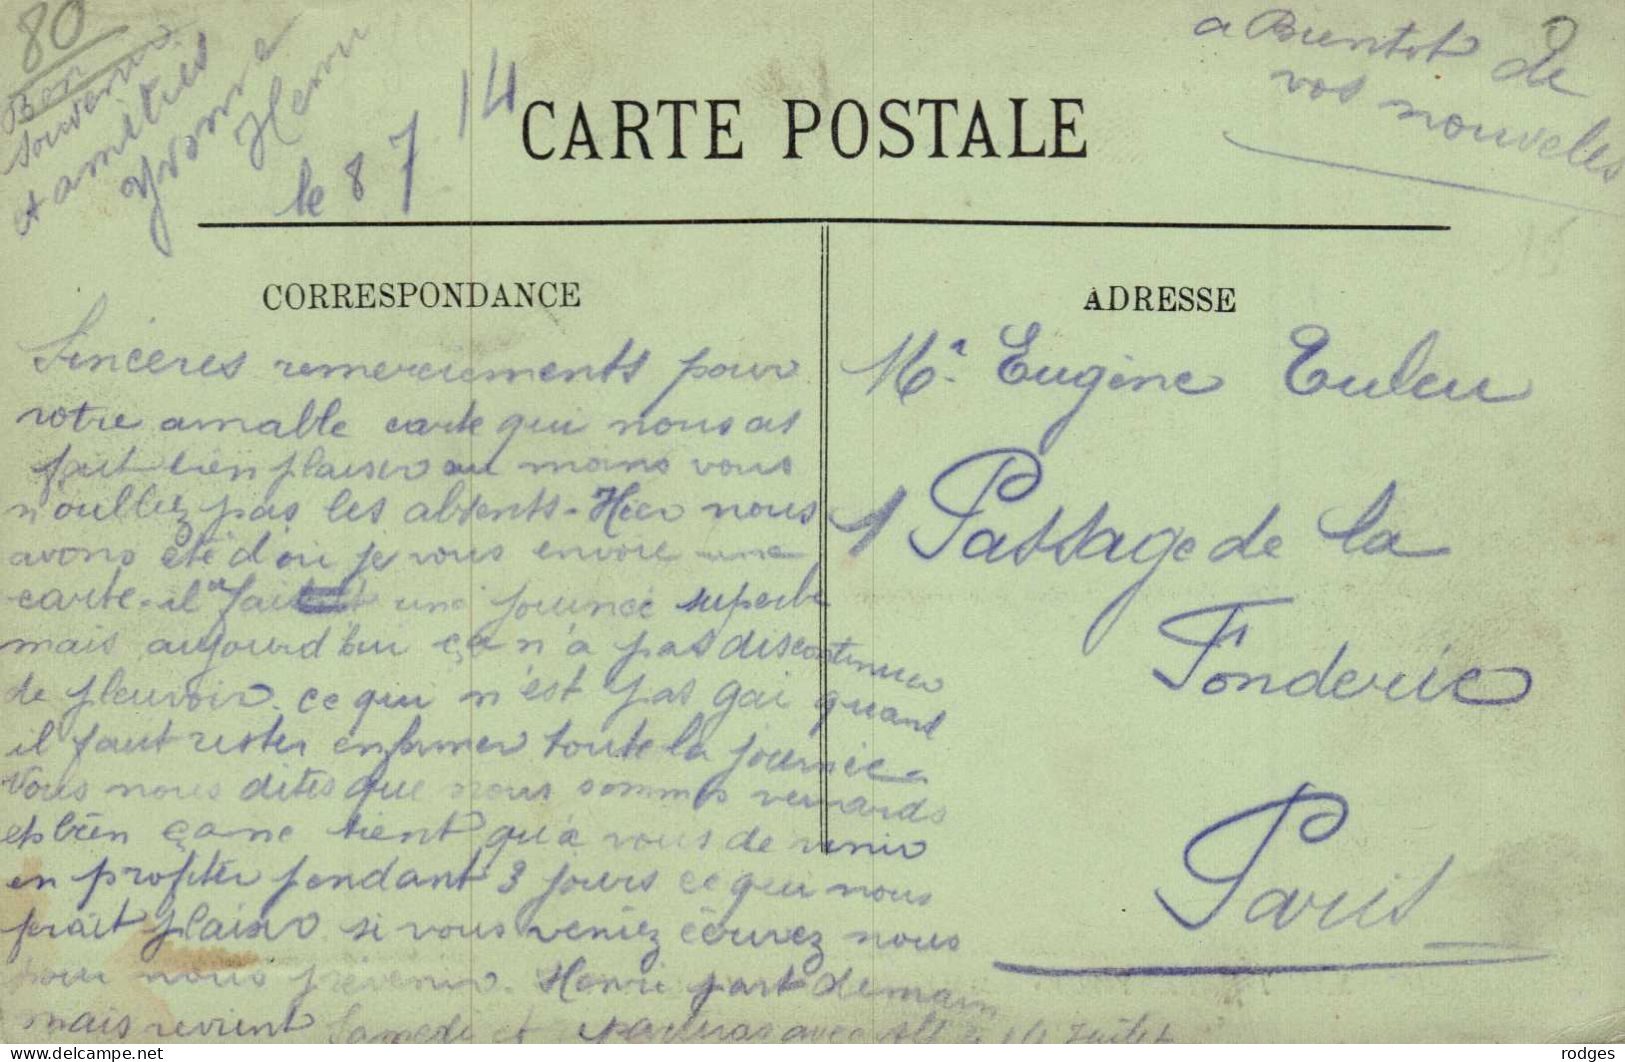 80
Bon
souvenir
et amitiés
Yvonne
Henri
le 8 7 14
a Bientot de
vos nouvelles
CARTE POSTALE
CORRESPONDANCE
Sincères remerciements pour
votre aimable carte qui nous as
fait bien plaisir au moins vous
n'oubliez pas les absents. Hier nous
avons été d'où je vous envoie une
carte. il a fait une journée superbe
mais aujourd'hui ça n'a pas discontinuer
de pleuvoir. ce qui n'est pas gai quand
il faut rester enfermer toute la journée
Vous nous dites que nous sommes veinards
eh bien ça ne tient qu'à vous de venir
en profiter pendant 3 jours ce qui nous
ferait plaisir si vous veniez écrivez nous
pour nous prévenir. Henri part demain
mais revient Samedi et avec 14 Juillet
ADRESSE
Mr. Eugène Euleu
1 Passage de la
Fonderie
Paris
rodges